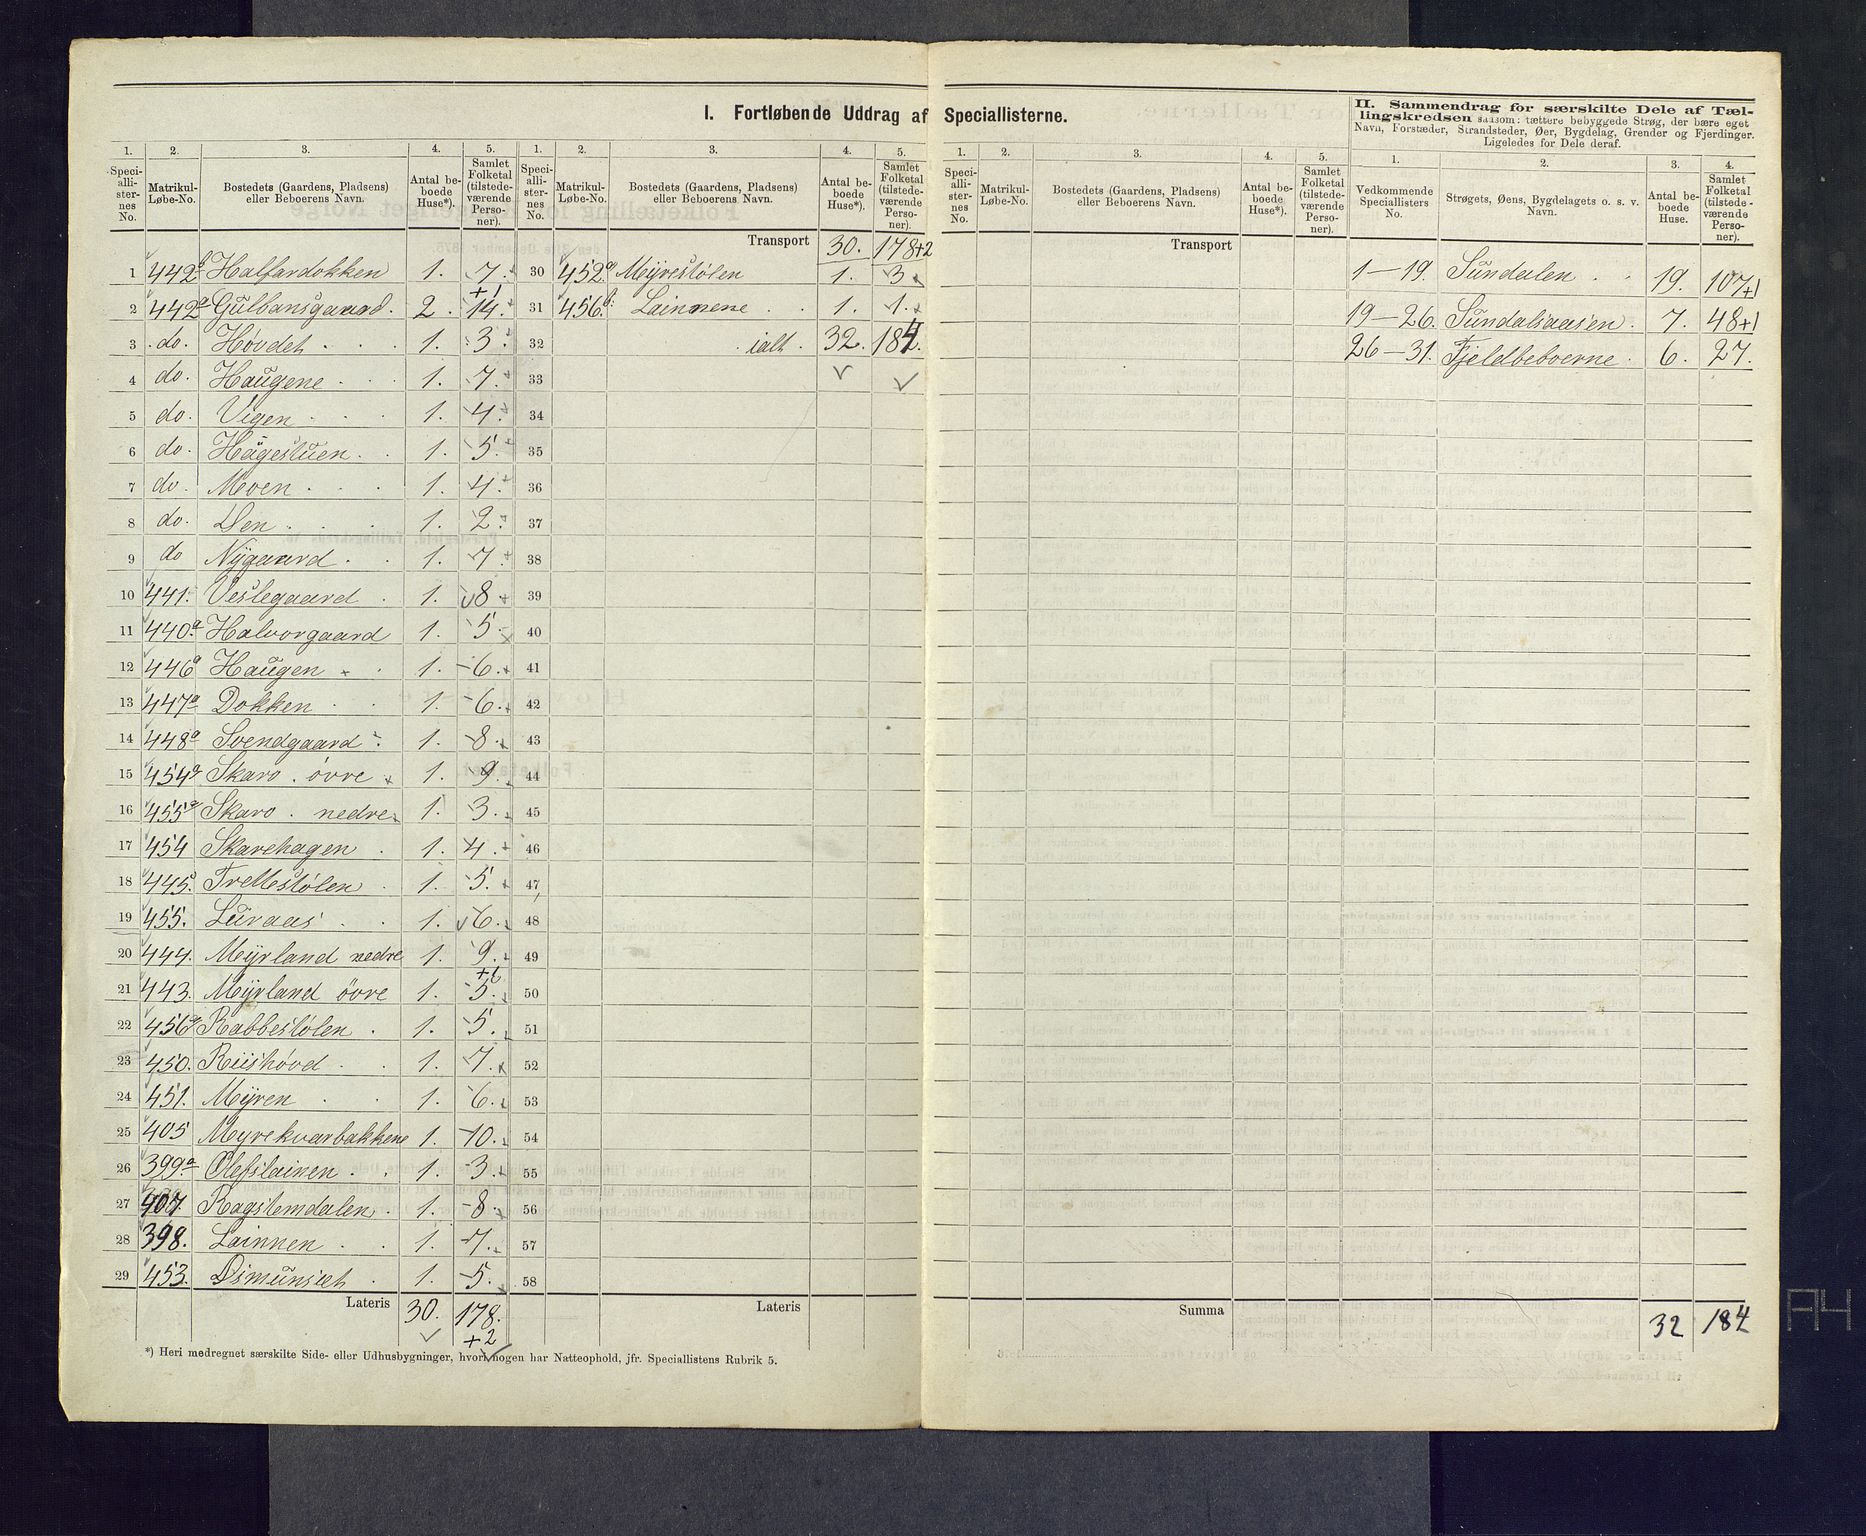 I. Fortløbende Uddrag af Speciallisterne.
II. Sammendrag for særskilte Dele af Tællingskredsen saasom: tættere bebyggede Strøg, der bære eget Navn, Forstæder, Strandsteder, Øer, Bygdelag, Grender og Fjerdinger. Ligeledes for Dele deraf.
1. 2. 3. 4. 5. 1. 2. 3. 4. 5. 1. 2. 3. 4. 5. 1. 2. 3. 4.
Speciallisternes No. Matrikul-Løbe-No. Bostedets (Gaardens, Pladsens) eller Beboerens Navn. Antal beboede Huse*). Samlet Folketal (tilstedeværende Personer).
Speciallisternes No. Matrikul-Løbe-No. Bostedets (Gaardens, Pladsens) eller Beboerens Navn. Antal beboede Huse*). Samlet Folketal (tilstedeværende Personer).
Speciallisternes No. Matrikul-Løbe-No. Bostedets (Gaardens, Pladsens) eller Beboerens Navn. Antal beboede Huse*). Samlet Folketal (tilstedeværende Personer).
Vedkommende Speciallisters No. Strøgets, Øens, Bygdelagets o. s. v. Navn. Antal beboede Huse. Samlet Folketal (tilstedeværende Personer).
1 442b Halfardokken 1. 7.
2 442a Gulbansgaard. 2. 14. +1
3 do. Høvdet 1. 3.
4 do. Haugene 1. 7.
5 do. Vigen 1. 4.
6 do. Hagestuen. 1. 5.
7 do. Moen 1. 4.
8 do. Øen 1. 2.
9 do Nygaard 1. 7.
10 441. Veslegaard 1. 8
11 440.a Halvorgaard 1. 5.
12 446a Haugen 1. 6.
13 447a Dokken 1. 6.
14 448a Svendgaard 1. 8.
15 454a Skaro. övre 1. 9.
16 455a Skaro. nedre 1. 3.
17 454 Skarehagen 1. 4.
18 445. Trettestølen 1. 5.
19 455. Luraas 1. 6.
20 444. Myrland nedre 1. 9.
21 443. Myrland övre 1. 5. +1
22 456a Rabbestølen 1. 5.
23 450. Riishövd 1. 7.
24 451. Myren 1. 6.
25 405 Myrekvarbakkene 1. 10.
26 399a Olefslainen 1. 3.
27 407. Ragstemdalen 1. 8.
28 398. Lainnen 1. 7.
29 453. 1. 5.
Lateris 30. 178. +2
Transport 30. 178+2
30 452.a Myrestølen 1. 3.
31 456.b: Lainnene 1. 1.
32 ialt. 32. 184.
33
34
35
36
37
38
39
40
41
42
43
44
45
46
47
48
49
50
51
52
53
54
55
56
57
58
Lateris
Transport
Summa
1–19. Sundalen 19. 107+1
19–26. Sundalsaasen. 7. 48+1
26–31. Fjeldbeboerne. 6. 27.
32 184
*) Heri medregnet særskilte Side- eller Udhusbygninger, hvori nogen har Natteophold, jfr. Speciallistens Rubrik 5.